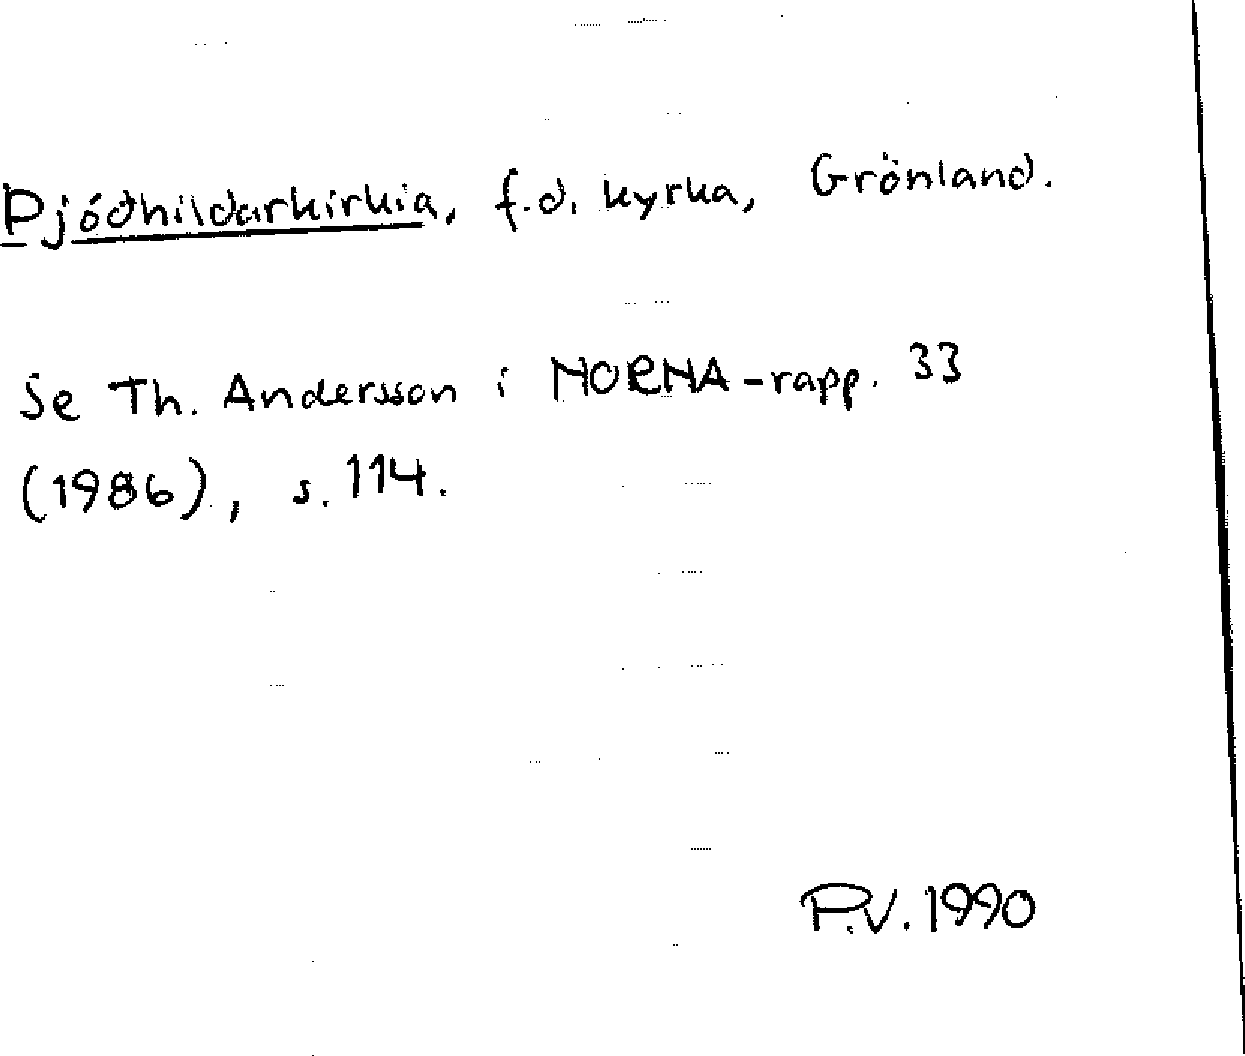 Þjóðhildarkirkia, f.d. kyrka, Grönland.
Se Th. Andersson i NORNA-rapp. 33
(1986), s. 114.
P.V. 1990